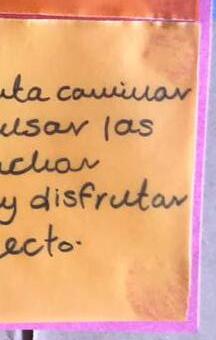 uta caminar
ulsar las
uchar
y disfrutar
ecto.